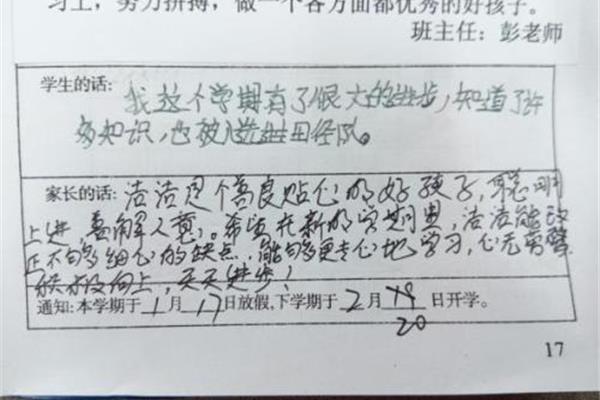 习上，努力拼搏，做一个各方面都优秀的好孩子。
班主任：彭老师
学生的话：我这个学期有了很大的进步，知道了许
多知识，也被选进田径队。
家长的话：洁洁是个善良贴心的好孩子，聪明
上进，善解人意。希望在新的学期里，洁洁能改
正不够细心的缺点，能够更专心地学习，心无旁骛
积极向上，天天进步！
通知：本学期于1月17日放假，下学期于2月19日开学。
20
17